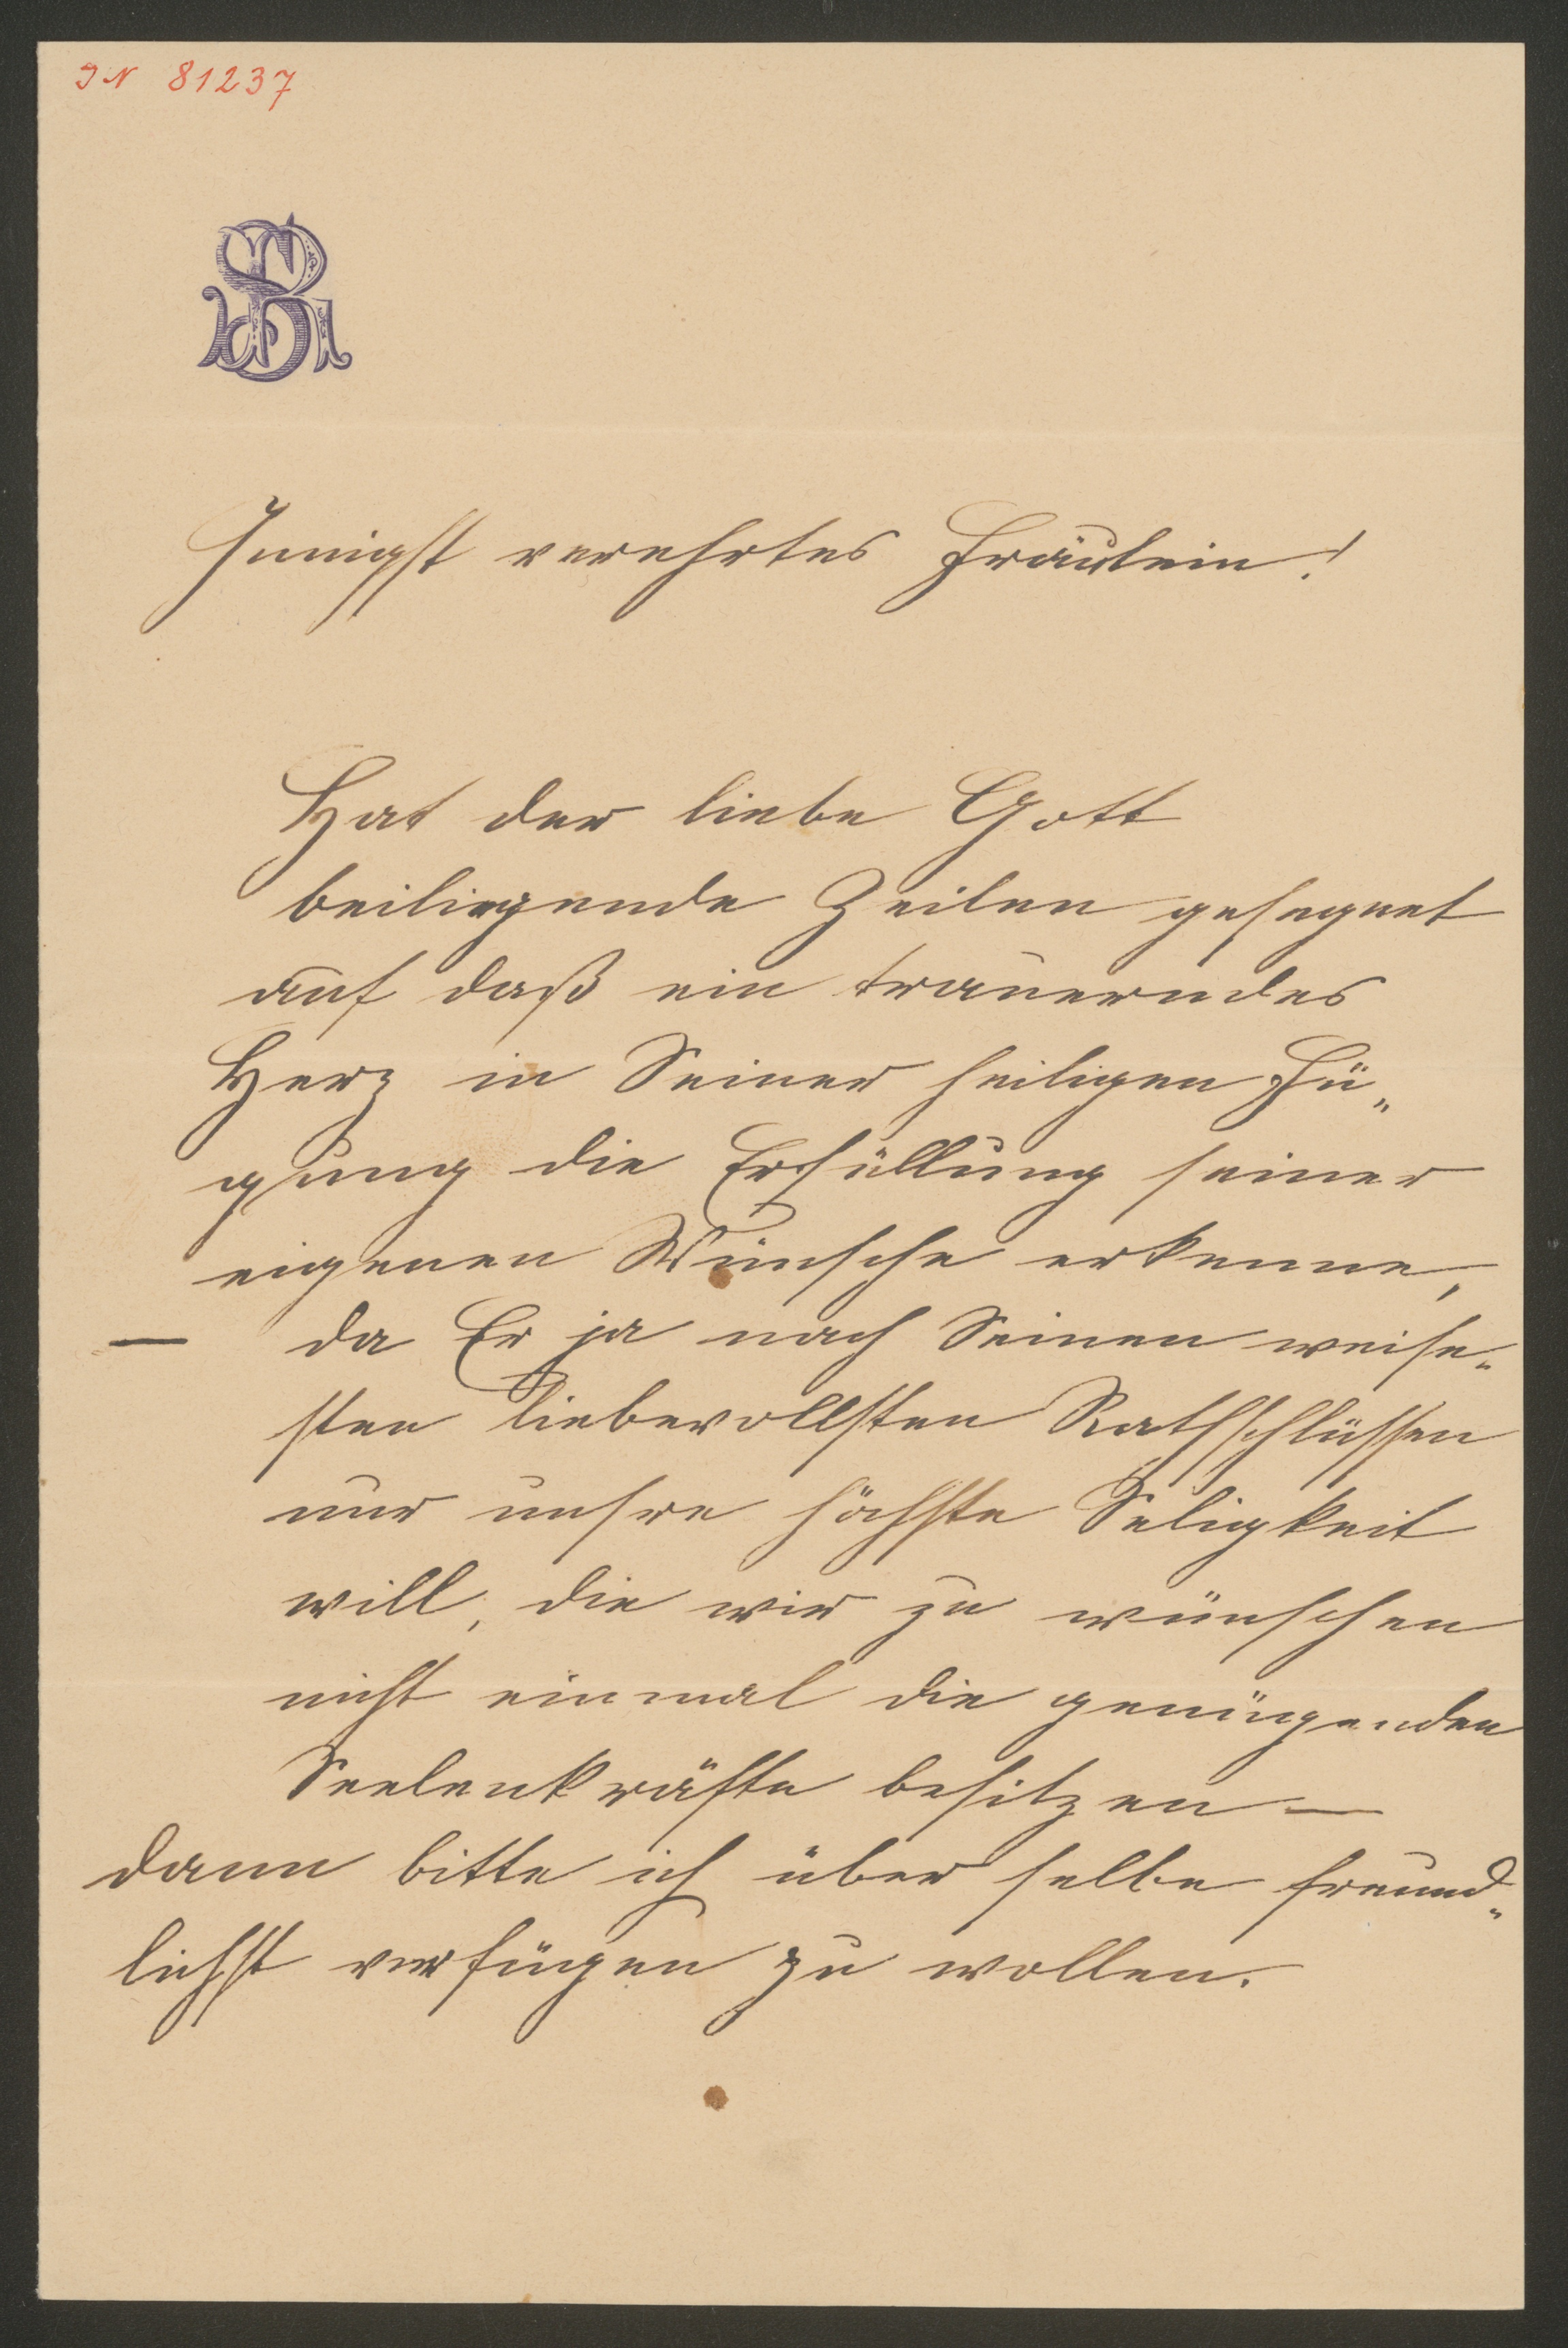 IN 81237
SR
Innigst verehrtes Fräulein!
Hat der liebe Gott
beiliegende Zeilen gesegnet
auf daß ein trauerndes
Herz in Seiner heiligen Fü„
gung die Erfüllung seiner
eigenen Wünsche erkenne,
— da Er ja nach Seinen weise„
sten liebevollsten Rathschlüssen
nur unsre höchste Seligkeit
will, die wir zu wünschen
nicht einmal die genügenden
Seelenkräfte besitzen —
dann bitte ich über selbe freund„
lichst verfügen zu wollen.